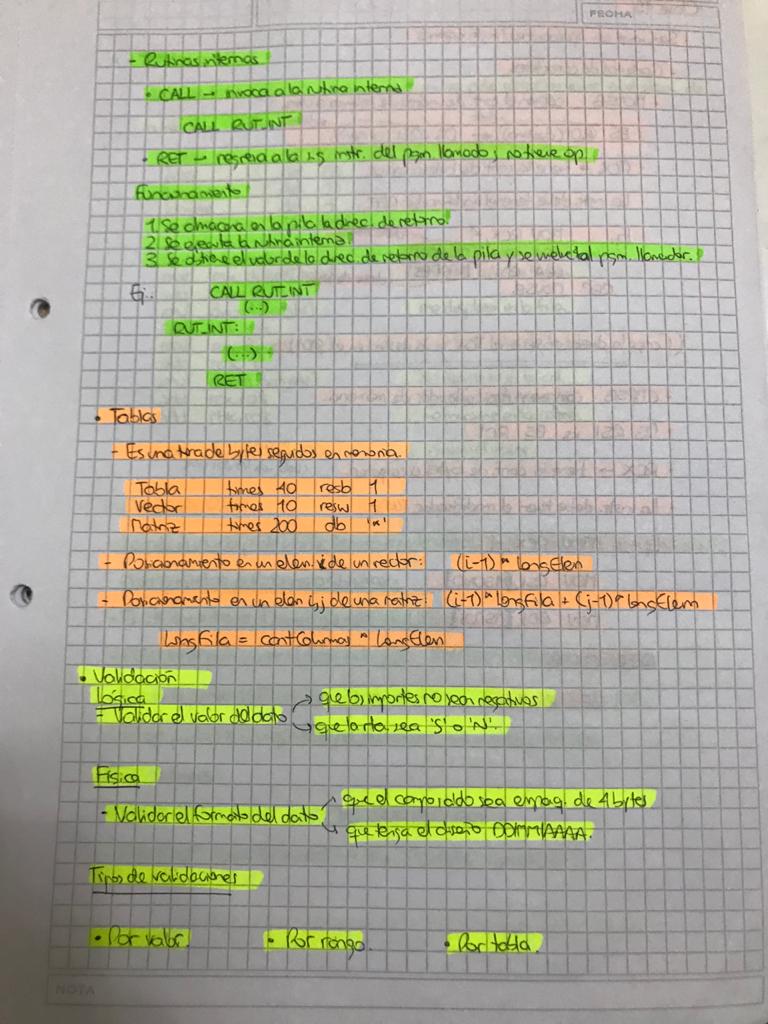 FECHA
- Rutinas internas
• CALL → invoca a la rutina interna
CALL RUT_INT
• RET → regresa a la sig instr. del pgm llamador; no tiene op.
Funcionamiento
1. Se almacena en la pila la direc. de retorno.
2. Se ejecuta la rutina interna.
3. Se obtiene el valor de la direc. de retorno de la pila y se vuelve al pgm. llamador.
Ej.: CALL RUT_INT
(...)
RUT_INT:
(...)
RET
• Tablas
- Es una tira de bytes seguidos en memoria.
Tabla times 40 resb 1
Vector times 10 resw 1
Matriz times 200 db '*'
- Posicionamiento en un elem. i de un vector: (i-1) * longElem
- Posicionamiento en un elem i,j de una matriz: (i-1)*longFila + (j-1)*longElem
longFila = cantColumnas * longElem
• Validación
Lógica
- Validar el valor del dato → que los importes no sean negativos
→ que la rta. sea 'S' o 'N'.
Física
- Validar el formato del dato → que el campo saldo sea empaq. de 4 bytes
→ que tenga el diseño DDMMAAAA.
Tipos de validaciones
• Por valor. • Por rango. • Por tabla.
NOTA